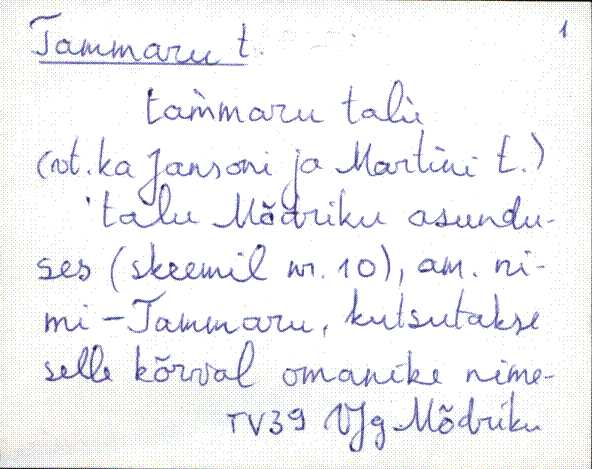 Tammaru t. 1
tam̀maru talù
(vt. ka Jansoni ja Martini t.)
'talu Mõdriku asundu-
ses (skeemil nr. 10), am. ni-
mi – Tammaru, kutsutakse
selle kõrval omanike nime-
TV39 VJg Mõdriku